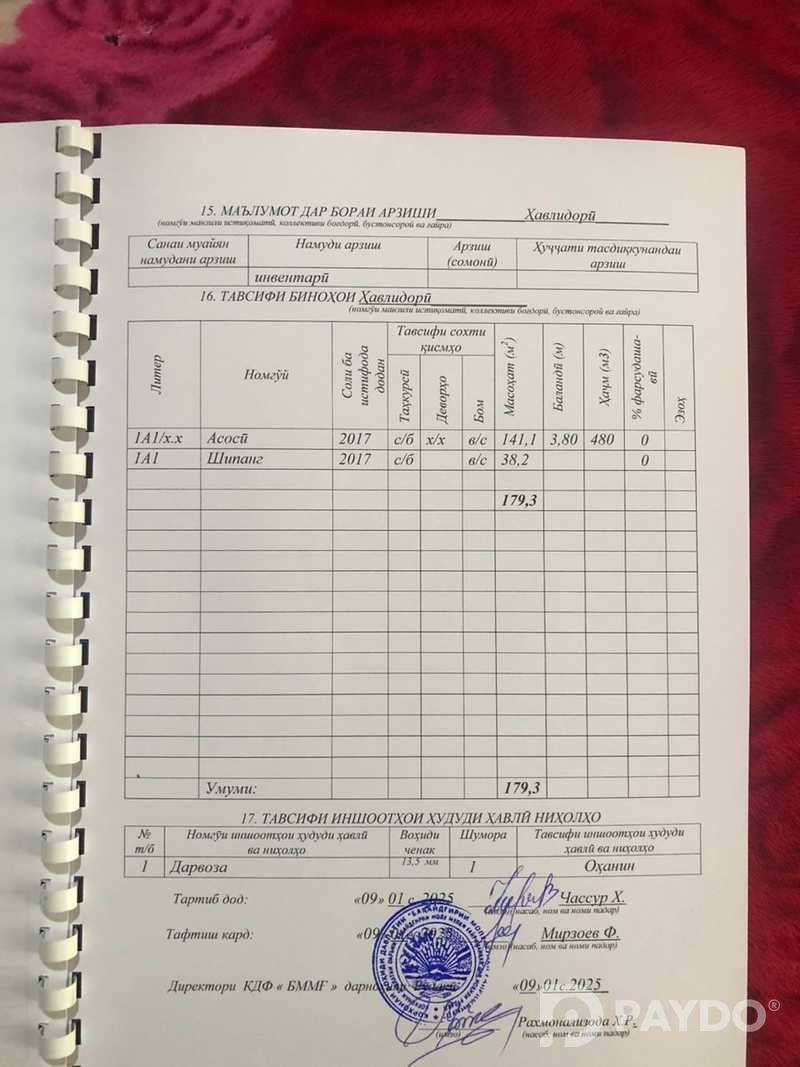 15. МАЪЛУМОТ ДАР БОРАИ АРЗИШИ Ҳавлидорӣ
(номгӯи манзили истиқоматӣ, коллективи боғдорӣ, бустонсороӣ ва ғайра)
Санаи муайян намудани арзиш Намуди арзиш Арзиш (сомонӣ) Ҳуҷҷати тасдиққунандаи арзиш
инвентарӣ
16. ТАВСИФИ БИНОҲОИ Ҳавлидорӣ
(номгӯи манзили истиқоматӣ, коллективи боғдорӣ, бустонсороӣ ва ғайра)
Литер Номгӯӣ Соли ба истифода додан Тавсифи сохти қисмҳо Таҳкурсӣ Деворҳо Бом Масоҳат (м²) Баландӣ (м) Ҳаҷм (м3) % фарсудаша-вӣ Эзоҳ
1А1/х.х Асосӣ 2017 с/б х/х в/с 141,1 3,80 480 0
1А1 Шипанг 2017 с/б в/с 38,2 0
179,3
Умуми: 179,3
17. ТАВСИФИ ИНШООТҲОИ ҲУДУДИ ҲАВЛӢ НИҲОЛҲО
№ т/б Номгӯи иншоотҳои ҳудуди ҳавлӣ ва ниҳолҳо Воҳиди ченак Шумора Тавсифи иншоотҳои ҳудуди ҳавлӣ ва ниҳолҳо
1 Дарвоза 13,5 мм 1 Оҳанин
Тартиб дод: «09» 01 с. 2025 Чассур Х.
(имзо) (насаб, ном ва номи падар)
Тафтиш кард: «09» 01 с. 2025 Мирзоев Ф.
(имзо) (насаб, ном ва номи падар)
Директори КДФ « БММГ » дар «09»01с.2025
Рахмонализода Х.Р.
(имзо) (насаб, ном ва номи падар)
PAYDO®